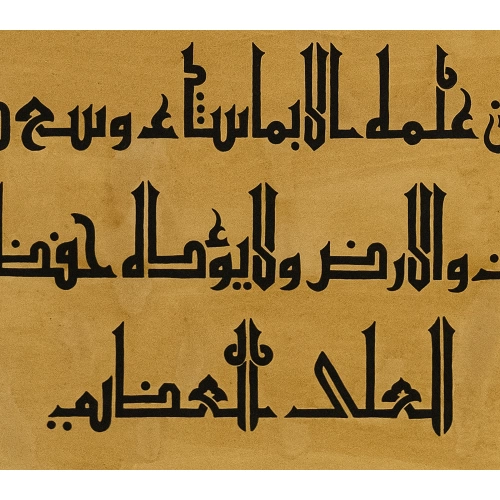 علمه الا بماشاء وسع
والارض ولا يؤده حفظ
العلى العظيم